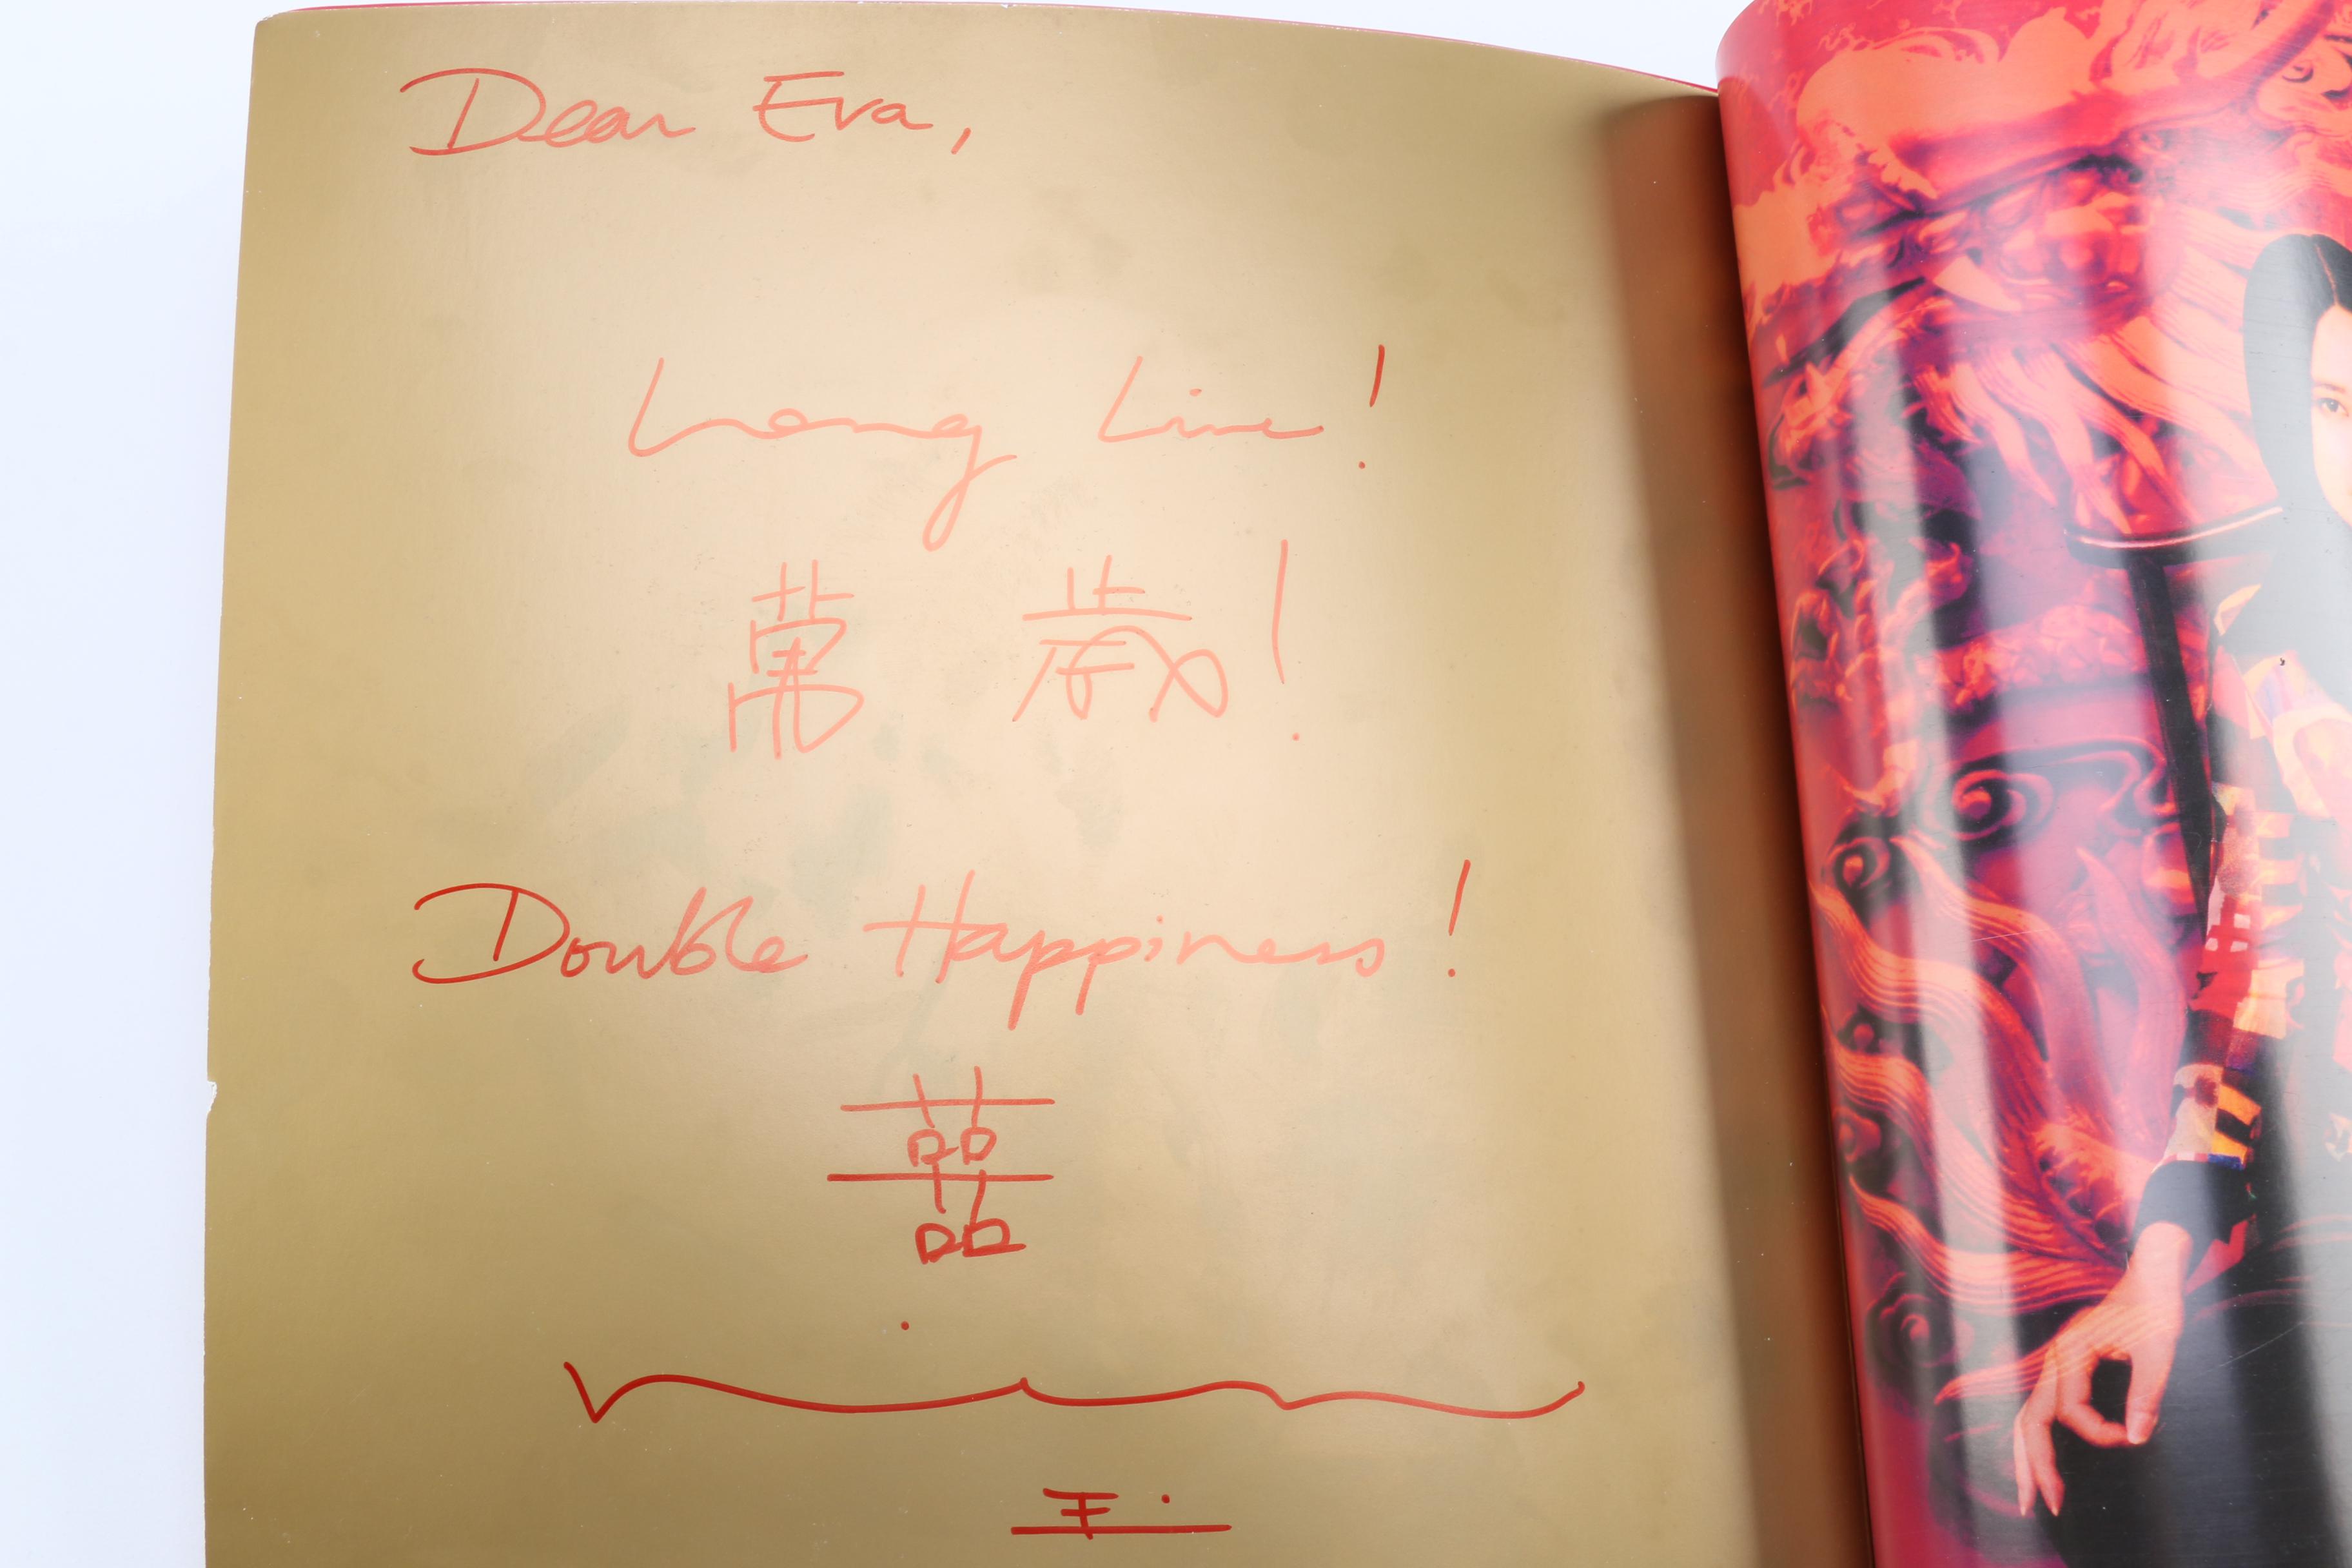 Dear Eva,
Long Live!
萬 歲!
Double Happiness!
囍